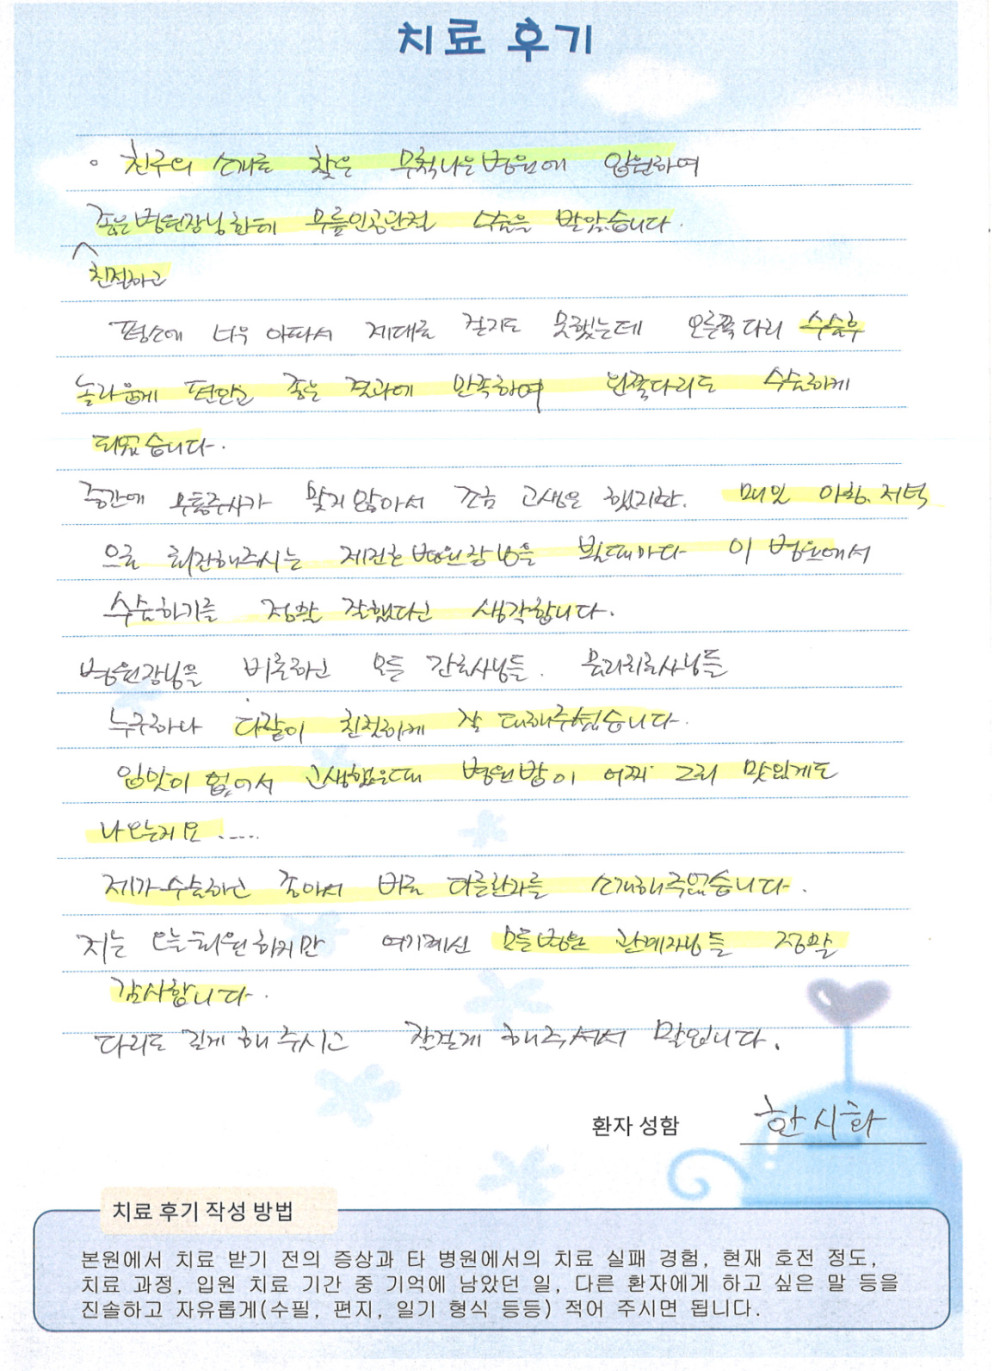 치료 후기
친구의 소개로 찾은 무척나은병원에 입원하여
좋은병원장님한테 무릎인공관절 수술을 받았습니다.
친절하고
평소에 너무 아파서 제대로 걷지도 못했는데 오른쪽다리 수술후
놀라웁게 편안한 좋은 결과에 만족하여 왼쪽다리도 수술하게
되었습니다.
중간에 무통주사가 맞지않아서 조금 고생은 했지만. 매일 아침. 저녁
으로 회진해주시는 병원장님을 볼때마다 이 병원에서
수술하기를 정말 잘했다고 생각합니다.
병원장님을 비롯하고 모든 간호사님들. 물리치료사님들
누구하나 다같이 친절하게 잘 대해주셨습니다.
입맛이 없어서 고생했을때 병원밥이 어찌 그리 맛있게도
나오는지요.....
제가수술하고 좋아서 바로 다른환자를 소개해주었습니다.
저는 오늘퇴원하지만 여기계신 모든병원 관계자님들 정말
감사합니다.
다리도 길게해주시고 잘걷게 해주셔서 말입니다.
환자 성함 한시화
치료 후기 작성 방법
본원에서 치료 받기 전의 증상과 타 병원에서의 치료 실패 경험, 현재 호전 정도,
치료 과정, 입원 치료 기간 중 기억에 남았던 일, 다른 환자에게 하고 싶은 말 등을
진솔하고 자유롭게(수필, 편지, 일기 형식 등등) 적어 주시면 됩니다.